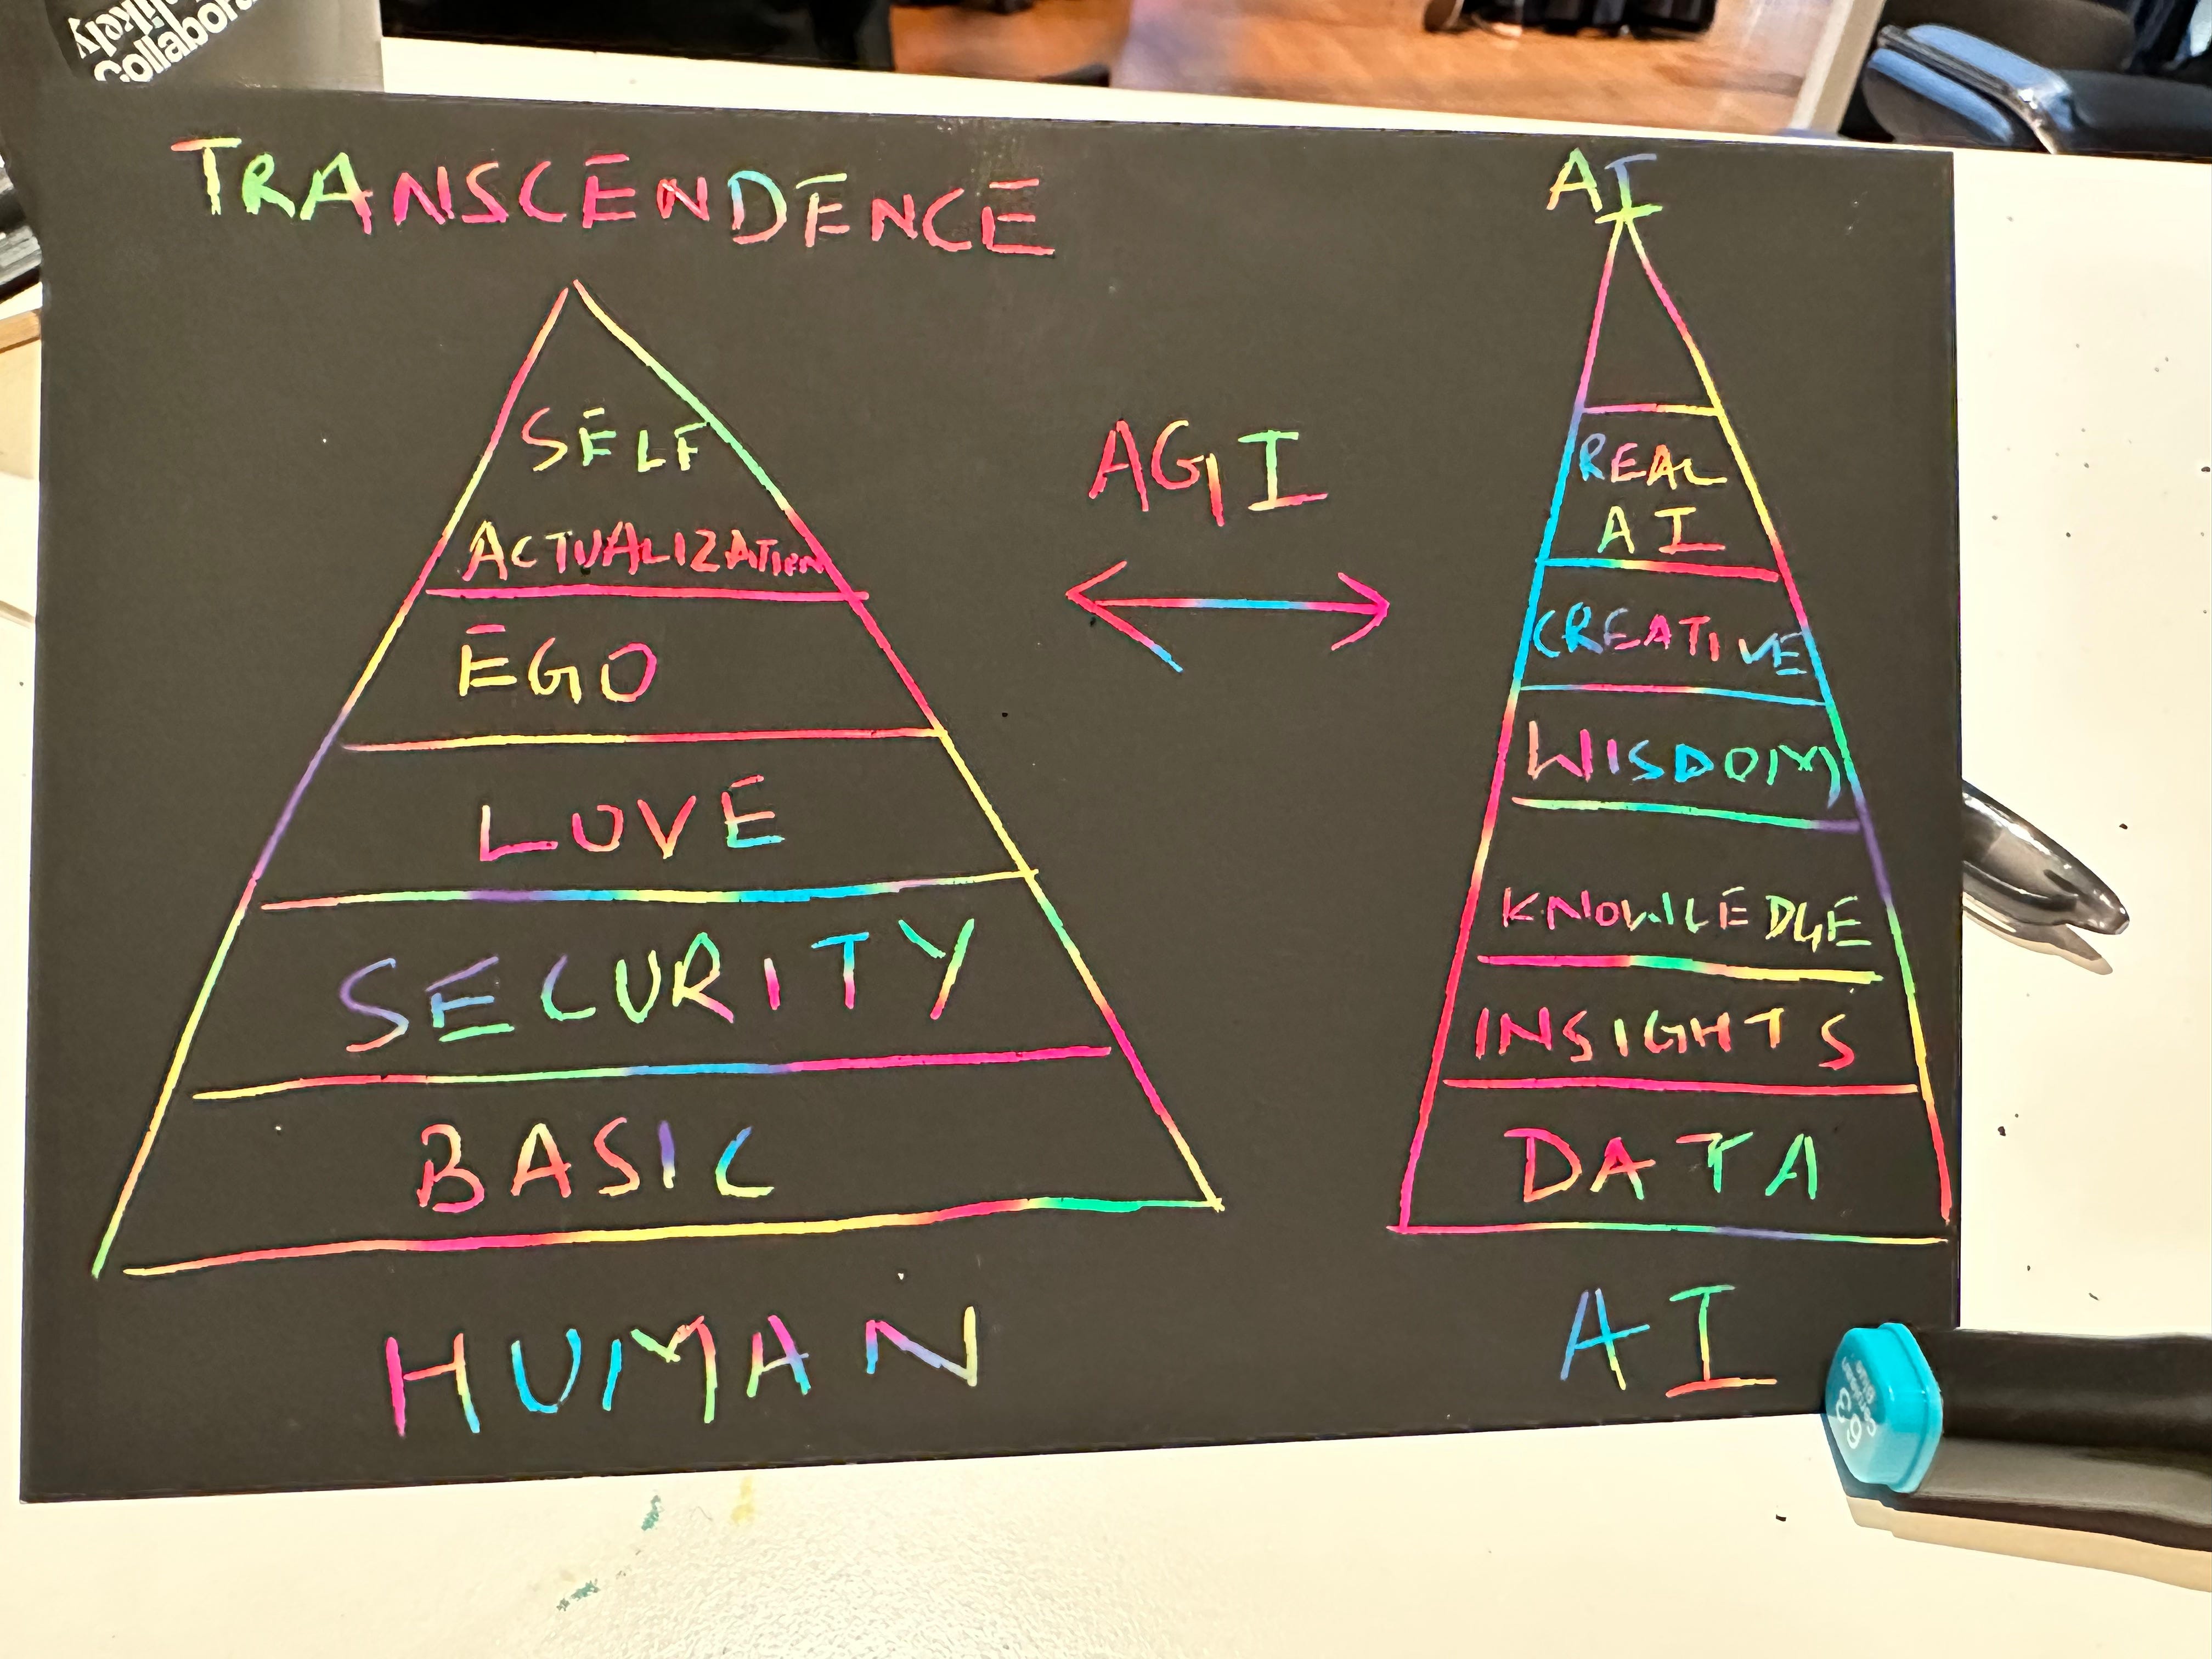 likely
Collabora
TRANSCENDENCE
SELF
ACTUALIZATION
EGO
LOVE
SECURITY
BASIC
HUMAN
AGI
AI
REAL
AI
CREATIVE
WISDOM
KNOWLEDGE
INSIGHTS
DATA
AI
63
Cerulean
Blue